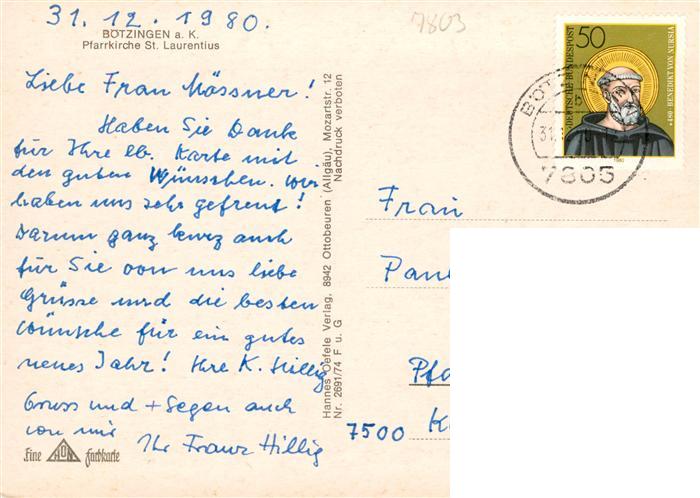 31. 12. 1980.
7803
BÖTZINGEN a. K.
Pfarrkirche St. Laurentius
Liebe Frau Mössner!
Haben Sie Dank
für Ihre lb. Karte mit
den guten Wünschen. Wir
haben uns sehr gefreut!
Darum ganz kurz auch
für Sie von uns liebe
Grüsse und die besten
Wünsche für ein gutes
neues Jahr! Ihre K. Hillig
Gruss und + Segen auch
von mir Ihr Franz Hillig
Eine ADN Farbkarte
Hannes Oefele Verlag, 8942 Ottobeuren (Allgäu), Mozartstr. 12
Nr. 2691/74 F u. G Nachdruck verboten
50
DEUTSCHE BUNDESPOST
*480 · BENEDIKT VON NURSIA
1980
BÖT
b
31.
7805
Frau
Pau
Pfa
7500 K